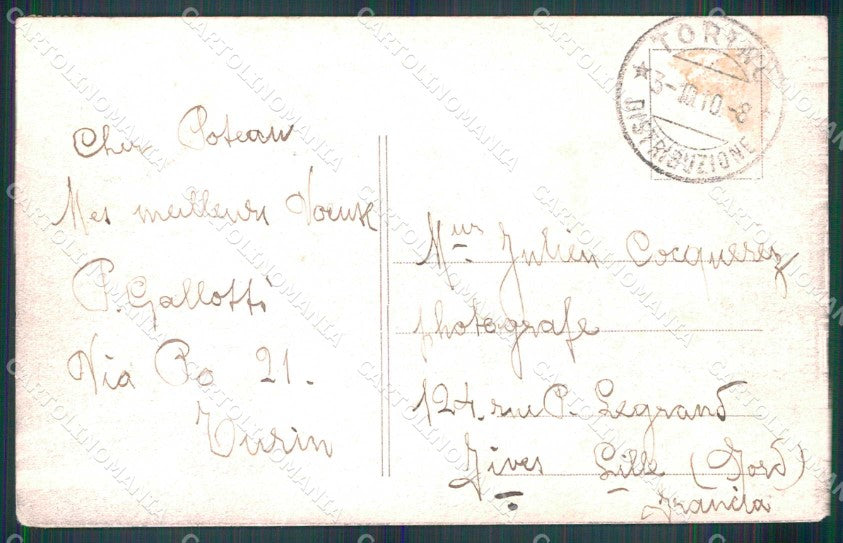 TORINO
3-III 10.-8
DISTRIBUZIONE
Cher Poteau
Mes meilleurs Voeux
P. Gallotti
Via Po 21.
Turin
Mur Julien Cocquerez
photografe
124. rue P. Legrand
Fives Lille (Nord)
Francia
CARTOLINOMANIA